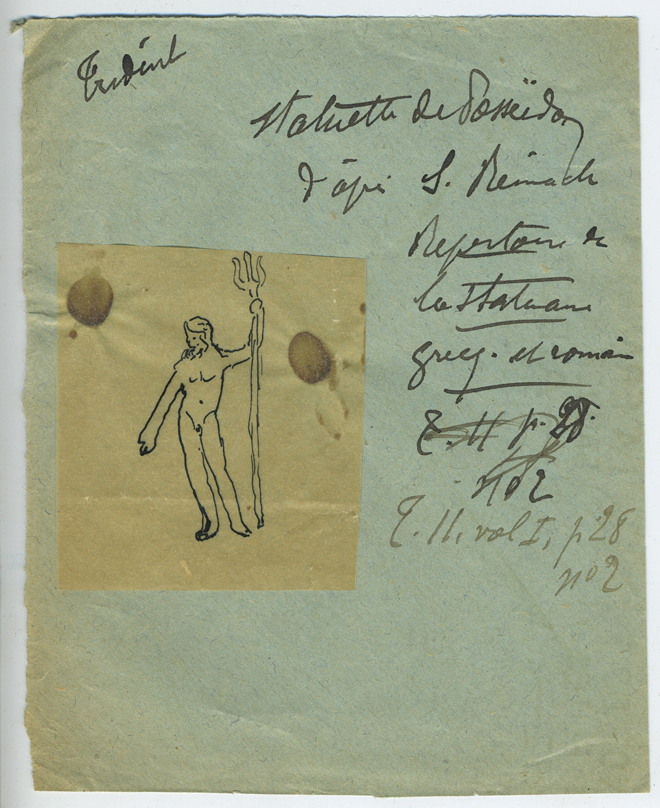 Trident
Statuette de Posseïdon
d'après S. Reinach
Repertoire de
la Statuaire
grecq. et romain
T. II p. 28.
no 2
T. II, vol I, p 28
no 2